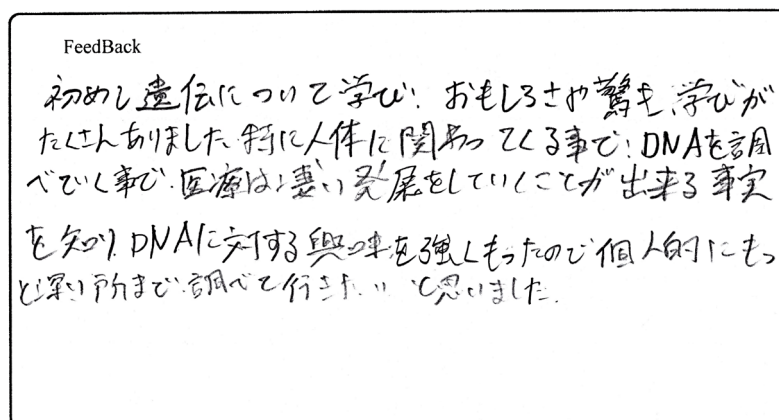 FeedBack
初めて遺伝について学び、おもしろさや驚き、学びが
たくさんありました。特に人体に関わってくる事で、DNAを調
べていく事で、医療は凄い発展をしていくことが出来る事実
を知り、DNAに対する興味を強くもったので個人的にもっ
と深い所まで調べて行きたいと思いました。